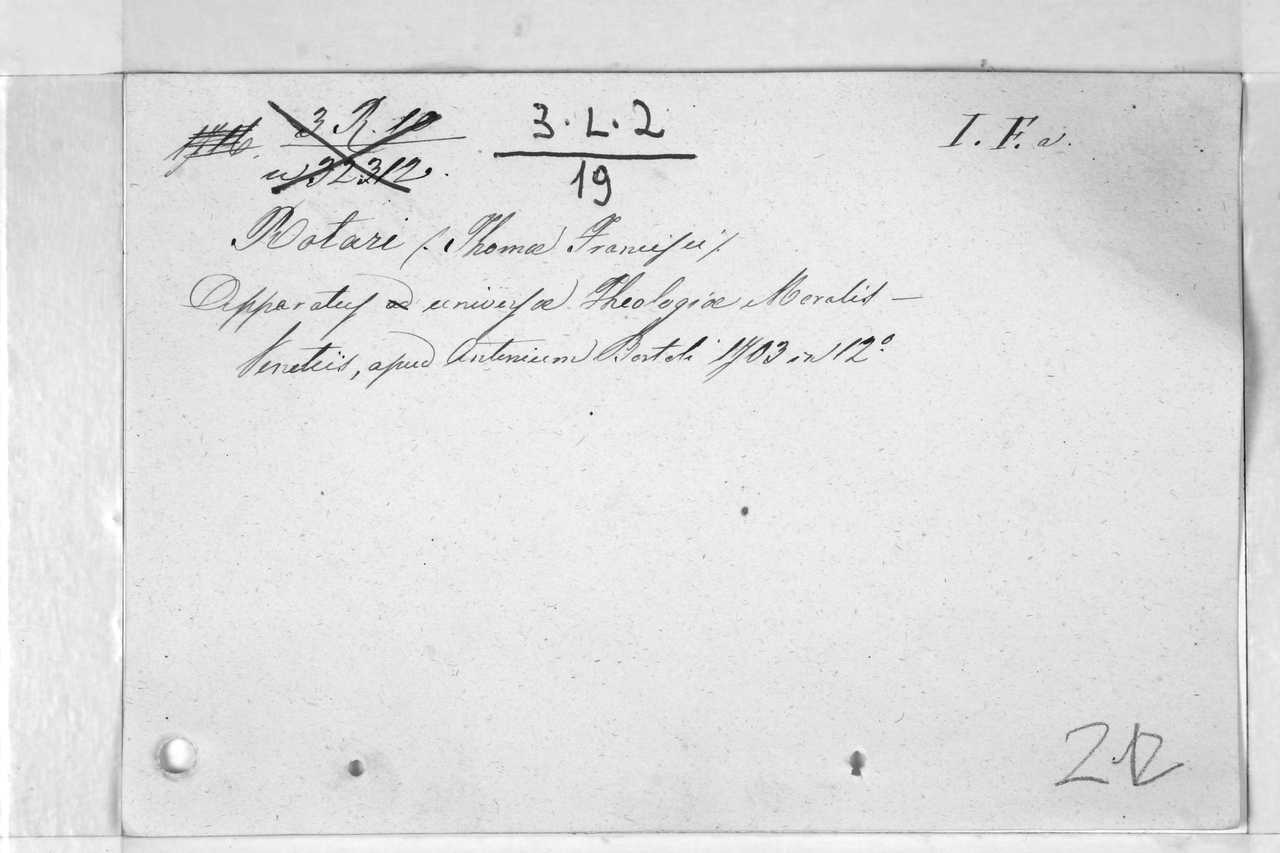 3 R. 10
3.L.2
I. F. a.
32312.
19
Rotari (Thomæ Francisci)
Apparatus ad universæ Theologiæ Moralis —
Venetiis, apud Antonium Bortoli 1703 in 12º